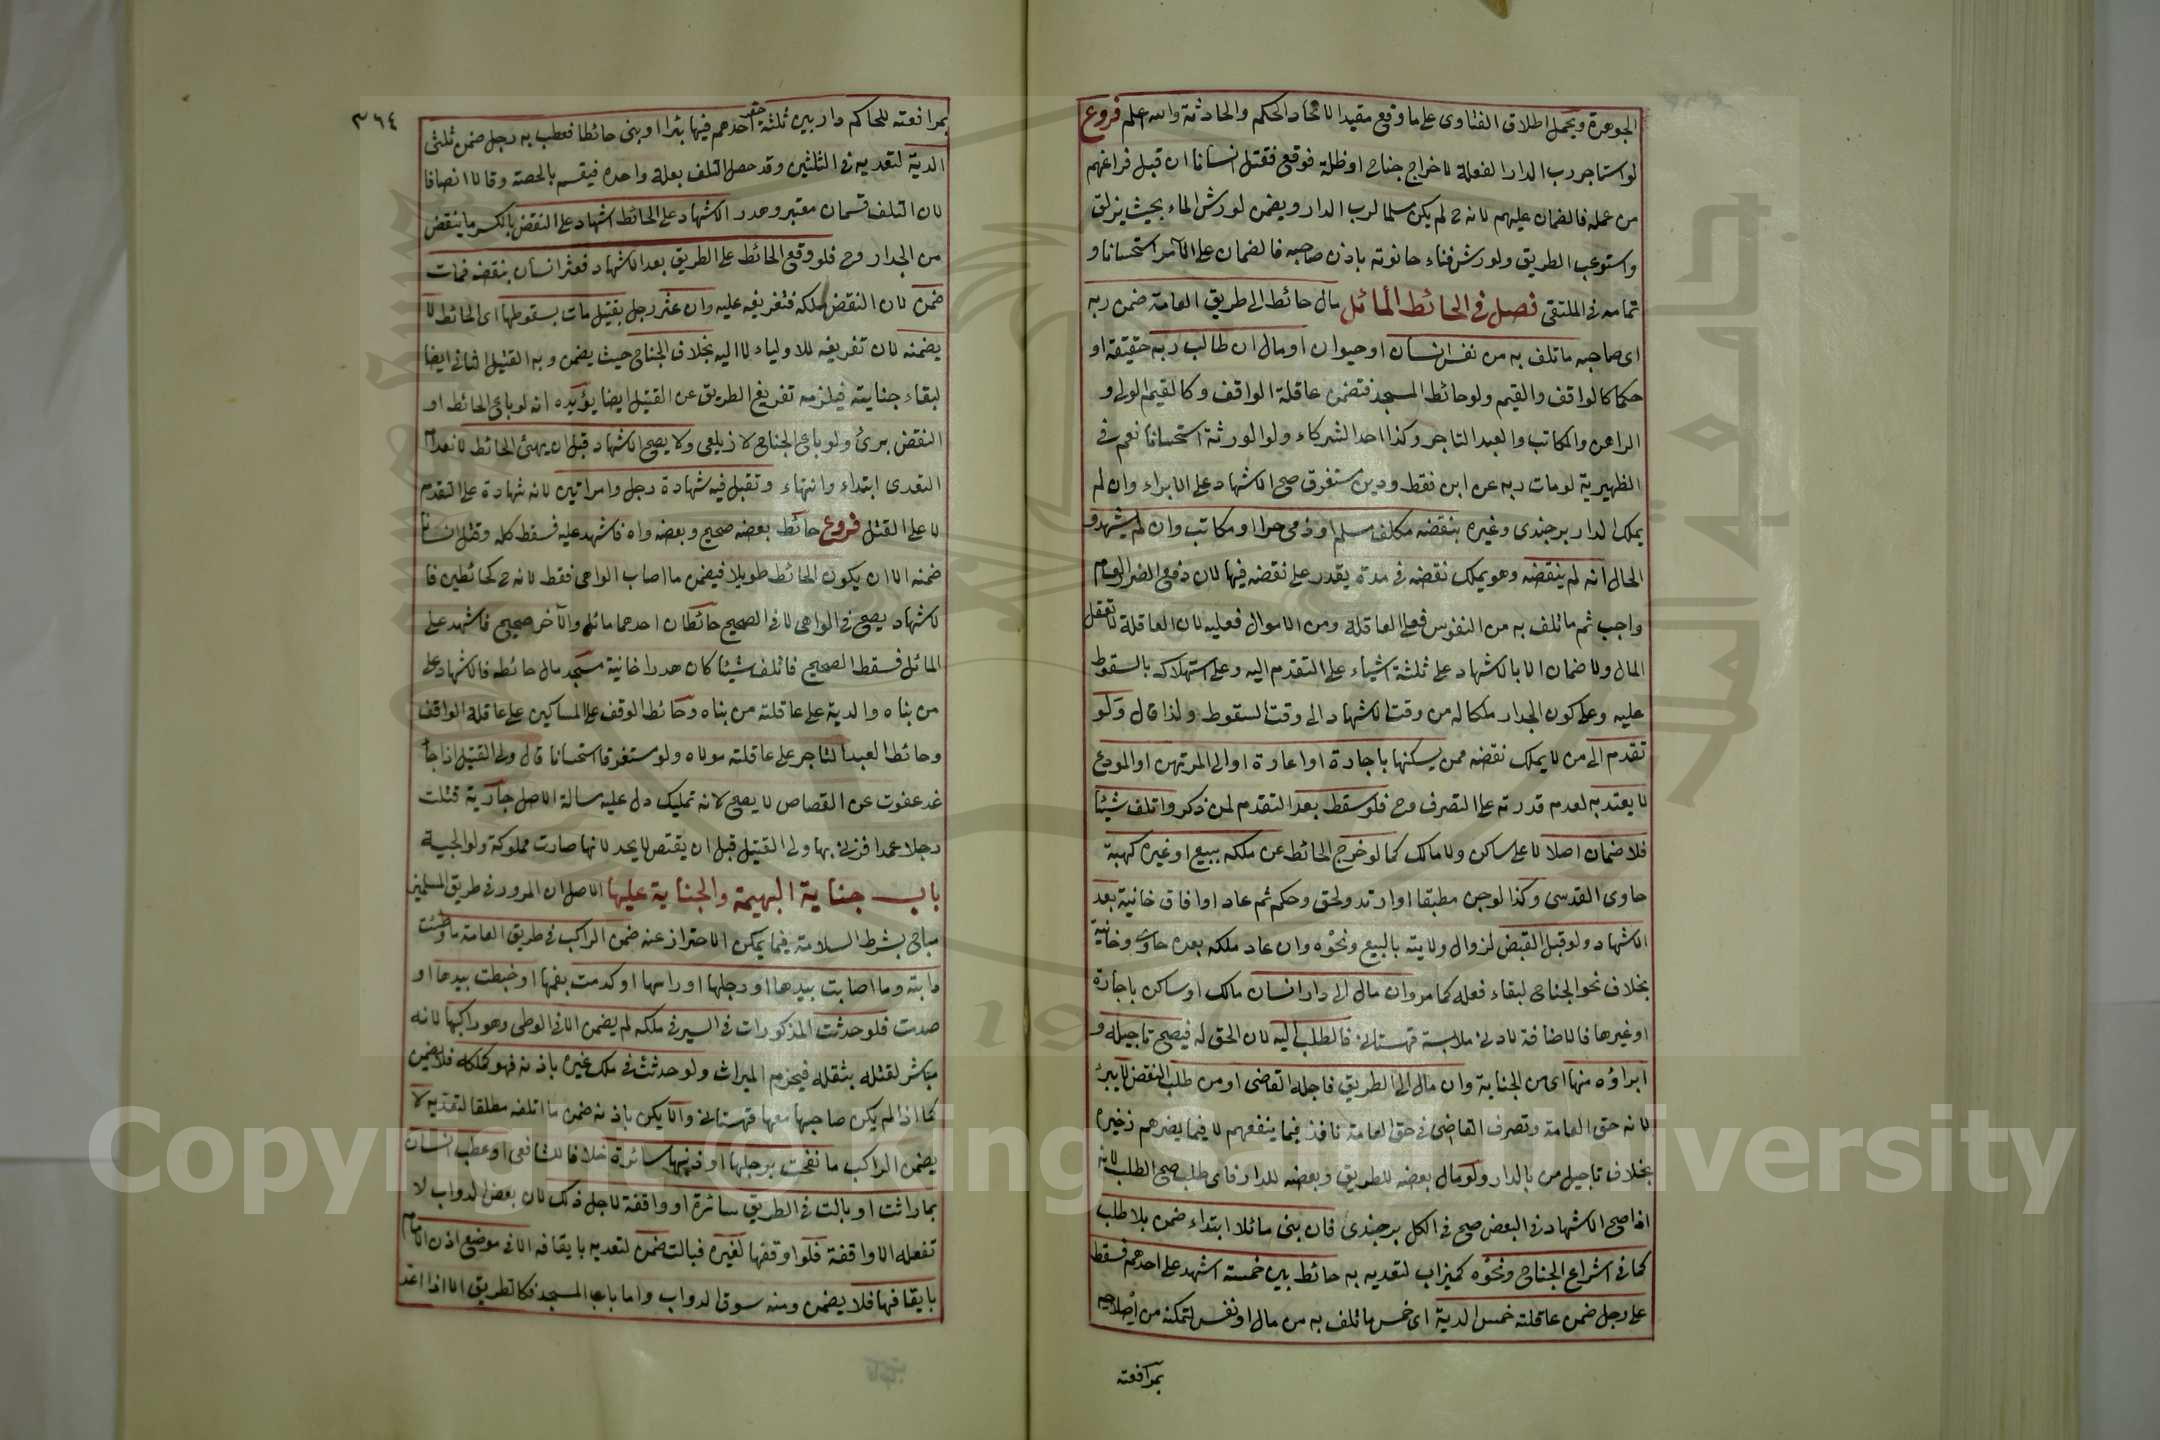 الجوهرة ويحمل اطلاق الفتاوى على ما وقع مقيدا لاتحاد الحكم والحادثة والله اعلم فروع
لو استاجر رب الدار الفعلة لاخراج جناح او ظلة فوقع فقتل انسانا ان قبل فراغهم
من عمله فالضمان عليهم لانه ح لم يكن مسلما لرب الدار ويضمن لو رش الماء بحيث يزلق
واستوعب الطريق ولو رش فناء حانوته باذن صاحبه فالضمان على الآمر استحسانا و
تمامه فى الملتقى فصل فى الحائط المائل مال حائط الى طريق العامة ضمن ربه
اى صاحبه ما تلف به من نفس انسان او حيوان او مال ان طالب ربه حقيقة او
حكما كالواقف والقيم ولو حائط المسجد فتضمن عاقلة الواقف وكالقيم الولى و
الراهن والمكاتب والعبد التاجر وكذا احد الشركاء ولو الورثة استحسانا نعم فى
الظهيرية لو مات ربه عن ابن فقط ودين مستغرق صح الاشهاد على الابراء وان لم
يملك الدار برجندى وغيره بنقضه مكلف مسلم او ذمى حر او مكاتب وان لم يشهد و
الحال انه لم ينقضه وهو يملك نقضه فى مدة يقدر على نقضه فيها لان دفع الضرر العام
واجب ثم ما تلف به من النفوس فعلى العاقلة ومن الاموال فعليه لان العاقلة لا تعقل
المال ولا ضمان الا بالاشهاد على ثلثة اشياء على التقدم اليه وعلى استهلاكه بالسقوط
عليه وعلى كون الجدار ملكا له من وقت الاشهاد الى وقت السقوط ولذا قال ولو
تقدم الى من لا يملك نقضه ممن يسكنها باجارة او اعارة او الى المرتهن او المودع
لا يعتد به لعدم قدرته على التصرف وح فلو سقط بعد التقدم لمن ذكر واتلف شيئا
فلا ضمان اصلا لا على ساكن ولا مالك كما لو خرج الحائط عن ملكه ببيع او غيره كهبة
حاوى القدسى وكذا لو جن مطبقا او ارتد ولحق وحكم ثم عاد او افاق خانية بعد
الاشهاد ولو قبل القبض لزوال ولايته بالبيع ونحوه وان عاد ملكه بعده حاوى وخانية
بخلاف نحو الجناح لبقاء فعله كما مر وان مال الى دار انسان مالك او ساكن باجارة
او غيرها فالاضافة لادنى ملابسة قهستانى فالطلب اليه لان الحق له فيصح تاجيله و
ابراؤه منها اى من الجناية وان مال الى الطريق فاجله القاضى او من طلب النقض لا يبرئ
لانه حق العامة وتصرف القاضى فى حق العامة نافذ فيما ينفعهم لا فيما يضرهم ذخيرة
بخلاف تاجيل من بالدار ولو مال بعضه للطريق وبعضه للدار فاى طلب صح الطلب لانه
اذا صح الاشهاد فى البعض صح فى الكل برجندى فان بنى مائلا ابتداء ضمن بلا طلب
كما فى اشراع الجناح ونحوه كميزاب لتعديه به حائط بين خمسة اشهد على احدهم فسقط
على رجل ضمن عاقلته خمس الدية اى خمس ما تلف به من مال او نفس لتمكنه من اصلاحه
بمرافعته
٣٦٤
بمرافعته للحاكم دار بين ثلثة حفر احدهم فيها بئرا او بنى حائطا فعطب به رجل ضمن ثلثى
الدية لتعديه فى الثلثين وقد حصل التلف بعلة واحدة فيقسم بالحصة وقالا انصافا
لان التلف قسمان معتبر وهدر الاشهاد على الحائط اشهاد على النقض بالكسر ما ينقض
من الجدار وح فلو وقع الحائط على الطريق بعد الاشهاد فعثر انسان بنقضه فمات
ضمن لان النقض ملكه فتفريغه عليه وان عثر رجل بقتيل مات بسقوطها اى الحائط لا
يضمنه لان تفريغه للاولياء لا اليه بخلاف الجناح حيث يضمن ربه القتيل الثانى ايضا
لبقاء جنايته فيلزمه تفريغ الطريق عن القتيل ايضا يؤيده انه لو باع الحائط او
النقض برئ ولو باع الجناح لا زيلعى ولا يصح الاشهاد قبل ان يهئ الحائط لانعدام
التعدى ابتداء وانتهاء وتقبل فيه شهادة رجل وامراتين لانه شهادة على التقدم
لا على القتل فروع حائط بعضه صحيح وبعضه واه فاشهد عليه فسقط كله وقتل انسانا
ضمنه الا ان يكون الحائط طويلا فيضمن ما اصاب الواهى فقط لانه ح كحائطين فا
لاشهاد يصح فى الواهى لا فى الصحيح حائطان احدهما مائل والآخر صحيح فاشهد على
المائل فسقط الصحيح فاتلف شيئا كان هدرا خانية مسجد مال حائطه فالاشهاد على
من بناه والدية على عاقلته من بناه وحائط الوقف على المساكين على عاقلة الواقف
وحائط العبد التاجر على عاقلته مولاه ولو مستغرقا استحسانا قال ولى القتيل اذا جاء
غد عفوت عن القصاص لا يصح لانه تمليك دل عليه سالة الاصل جارية قتلت
رجلا عمدا فزنى بها ولى القتيل قبل ان يقتص لا يحد لانها صارت مملوكة ولوالجية
باب جناية البهيمة والجناية عليها الاصل ان المرور فى طريق المسلمين
مباح بشرط السلامة فيما يمكن الاحتراز عنه ضمن الراكب فى طريق العامة ما وطئت
دابته وما اصابت بيدها او رجلها او راسها او كدمت بفمها او خبطت بيدها او
صدت فلو حدثت المذكورات فى السير فى ملكه لم يضمن الا فى الوطى وهو راكبها لانه
مباشر لقتله بثقله فيحرم الميراث ولو حدثت فى ملك غيره باذنه فهو كملكه فلا يضمن
كما اذا لم يكن صاحبها معها قهستانى والا يكن باذنه ضمن ما اتلفه مطلقا لتعديه لا
يضمن الراكب ما نفحت برجلها او ذنبها سائرة خلافا للشافعى او عطب انسان
بما راثت او بالت فى الطريق سائرة او واقفة لاجل ذلك لان بعض الدواب لا
تفعله الا واقفة فلو اوقفها لغيره فبالت ضمن لتعديه بايقافه الا فى موضع اذن الامام
بايقافها فلا يضمن ومنه سوق الدواب واما باب المسجد فكالطريق الا اذا اعد
Copyright © King Saud University